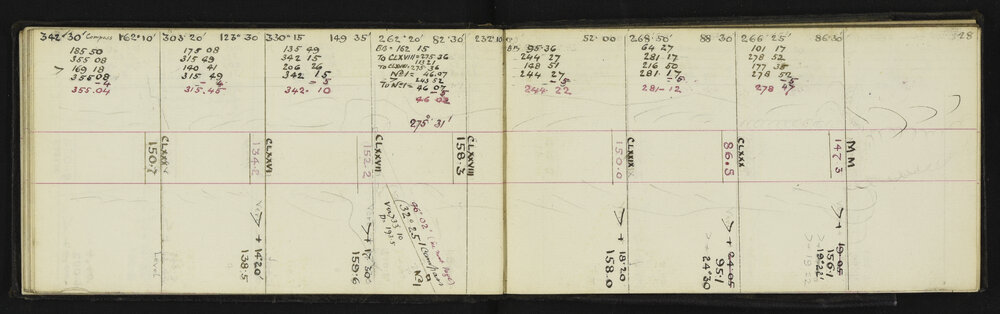 342° 30' Compass 162° 10' 303° 20' 123° 30' 330° 15 149 35' 262° 20 82° 30' 232° 10'
185 50
355 08
169 18
355 08
-4
355.04
175 08
315 49
140 41
315 49
-4
315.45
135 49
342 15
206 26
342 15
-5
342.10
BB = 162 15
To CLXVIII = 275.36
113 21
To CLXVIII = 275.36
No1 = 46.07
243 52
To No1 = 46 07
-5
46 02
275° 31'
52° 00 268° 50' 88 30 266° 25' 86° 30' 328
BB 95.36
244 27
148 51
244 27
-5
244.22
64 27
281 17
216 50
281.17
-5
281-12
101 17
278 52
177 35
278 52
-5
278 47
150.7
CLXXV
134.2
CLXXVI
152.2
CLXXVII
158.3
CLXXVIII
150.0
CLXXIX
86.5
CLXXX
147.3
MM
+ 14° 20'
138.5
+ 17° 30'
158.6
46° 02'
32° 25'
Var 333 10
No1
+ 18° 20
158.0
+ 24° 05
95.1
- 24° 30
+ 19° 05
156.1
- 19° 22'